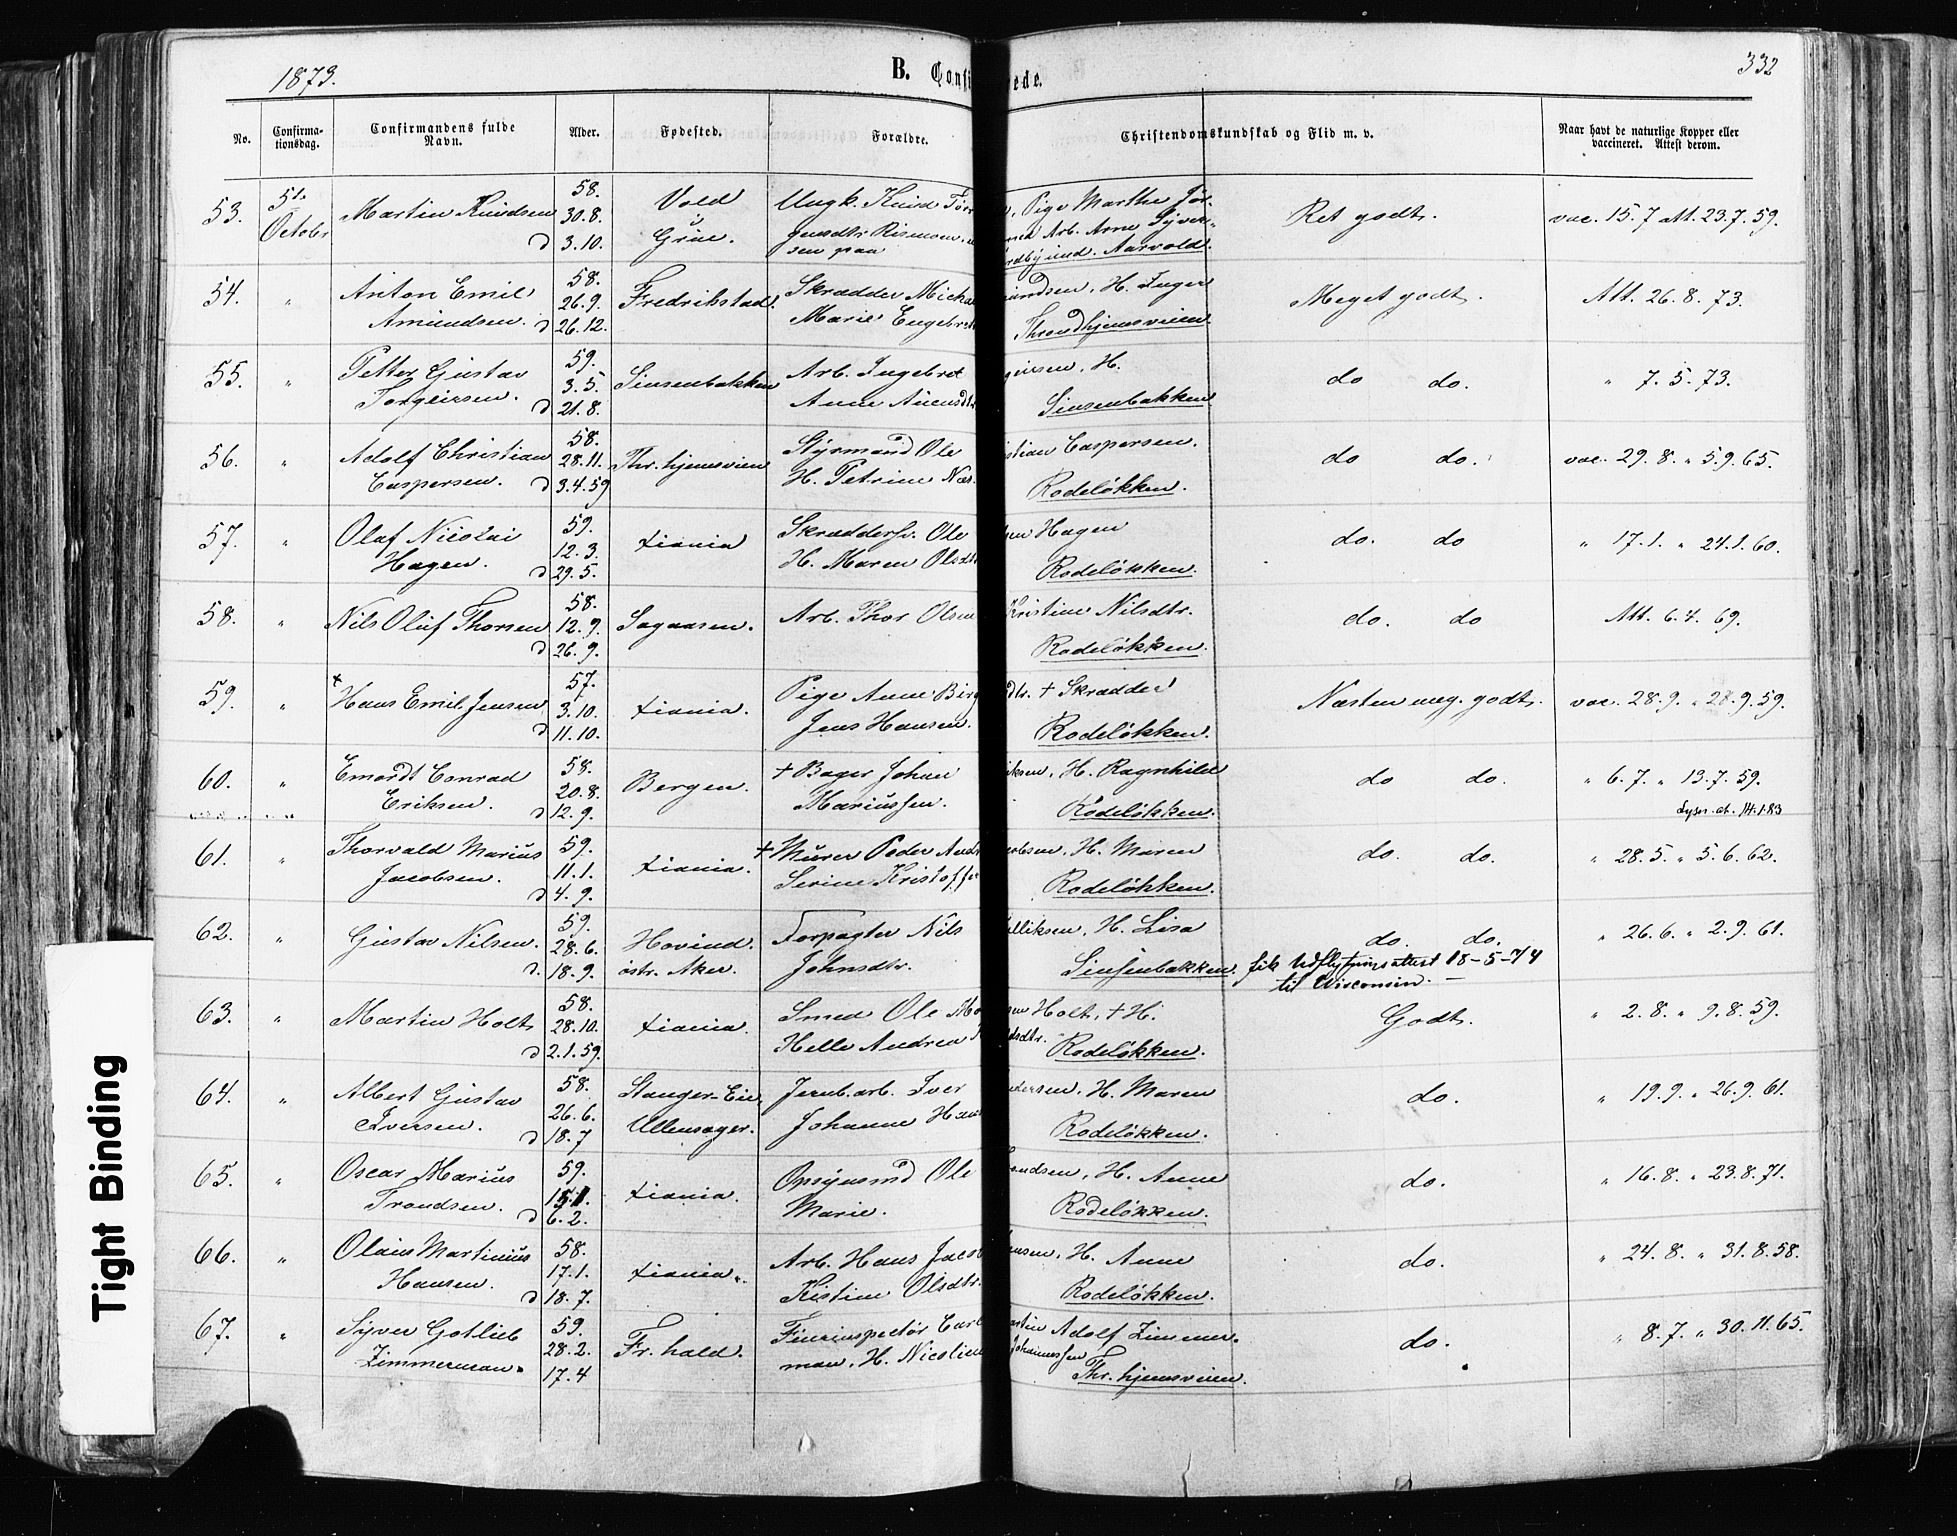 1873.
B. Confi ede.
332
No.
Confirma-
tionsdag.
Confirmandens fulde
Navn.
Alder.
Fødested.
Forældre.
Christendomskundskab og Flid m. v.
Naar havt de naturlige Kopper eller
vaccineret. Attest derom.
53. 5te October Martin Knudsen 58. 30.8. d 3.10. Vold Grue. Ungk. Knud Tørr , Pige Marthe Jør-
sen paa Arb. Arne Syver-
Aarvold. Ret godt. vac. 15.7 att. 23.7.59.
54. " Anton Emil 58. 26.9. Fredrikstad. Skrædder Micha undsen, H. Inger Meget godt. Att. 26.8.73.
Amundsen. d 26.12. Marie Engebret Throndhjemsveien.
55. " Petter Gustav 59. 3.5. Sinsenbakken Arb. Ingebret geirsen, H. do do. " 7.5.73.
Torgeirsen. d 21.8. Anne Auensdtr Sinsenbakken.
56. " Adolf Christian 58. 28.11. Thr.hjemsveien Styrmand Ole stian Caspersen. do do. vac. 29.8. " 5.9.65.
Caspersen. d 3.4.59 H. Petrine Næs Rodeløkken.
57. " Olaf Nicolai 59. 12.3. Xiania Skræddersv. Ole sen Hagen do. do " 17.1. " 24.1.60.
Hagen. d 29.5. H. Maren Olsdt Rodeløkken.
58. " Nils Oluf Thorsen 58. 12.9. d 26.9. Sagaasen. Arb. Thor Olsen Kristine Nilsdtr. do. do Att. 6.4.69.
Rodeløkken.
59. " + Hans Emil Jensen 57. 3.10. d 11.10. Xiania. Pige Anne Birg dtr. + Skrædder Næsten meg. godt. vac. 28.9. " 28.9.59.
Jens Hansen. Rodeløkken.
60. " Emardt Conrad 58. 20.8. Bergen. + Bager Johan iksen, H. Ragnhild do do. " 6.7. " 13.7.59.
Eriksen. d 12.9. Mariussen. Rodeløkken. Lysn. at. 14.1.83
61. " Thorvald Marius 59. 11.1. Xiania. + Murer Peder And cobsen, H. Maren do. do. " 28.5. " 5.6.62.
Jacobsen. d 4.9. Serine Kristoffe Rodeløkken.
62. " Gustav Nilsen. 59. 28.6. Hovind. Forpagter Nils ulliksen, H. Lisa do. do. " 26.6. " 2.9.61.
d. 18.9. østr. Aker. Johnsdtr. Sinsenbakken. fik Udflytningsattest 18-5-74
til Wisconsin. —
63. " Martin Holt 58. 28.10. Xiania. Smed Ole Mo sen Holt, + H. Godt. " 2.8. " 9.8.59.
d 2.1.59. Helle Andrea dsdtr. Rodeløkken.
64. " Albert Gustav 58. 26.6. Stanger-Eie, Jernb.arb. Iver ndersen, H. Maren do. " 19.9. " 26.9.61.
Iversen. d 18.7 Ullensager. Johanne Hans Rodeløkken.
65. " Oscar Marius 59. 15.1. Xiania. Opsynsmd Ole ondsen, H. Anne do. " 16.8. " 23.8.71.
Trondsen. d 6.2. Marie. Rodeløkken.
66. " Olaus Martinius 58. 17.1. Xiania. Arb. Hans Jacob nsen, H. Anne do. " 24.8. " 31.8.58.
Hansen. d 18.7. Kistine Olsdtr. Rodeløkken.
67. " Syver Gotlieb 59. 28.2. Fr.hald. Carl artin Adolf Zimmer- do. " 8.7. " 30.11.65.
Zimmerman. 17.4 man, H. Nicoline Johannessen
Thr.hjemsveien.
Tight Binding